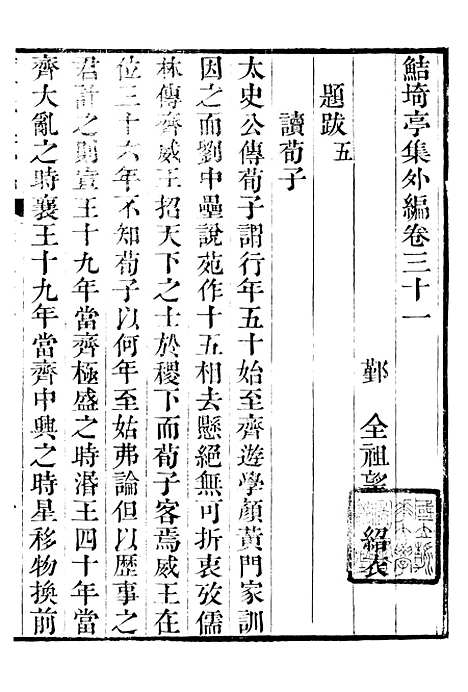 鮚埼亭集外編卷三十一
鄞 全祖望 紹衣
題跋五
讀荀子
太史公傳荀子謂行年五十始至齊遊學顏黃門家訓
因之而劉中壘說苑作十五相去懸絕無可折衷攷儒
林傳齊威王招天下之士於稷下而荀子客焉威王在
位三十六年不知荀子以何年至姑弗論但以歷事之
君計之則宣王十九年當齊極盛之時湣王四十年當
齊大亂之時襄王十九年當齊中興之時星移物換前